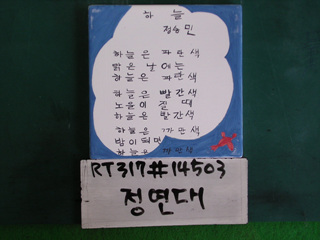 하늘
정승민
하늘은 파란색
맑은 날에는
하늘은 파란색
하늘은 빨간색
노을이 질 때
하늘은 빨간색
하늘은 까만색
밤이 되면
하늘은 까만색
RT317#14503
정연대